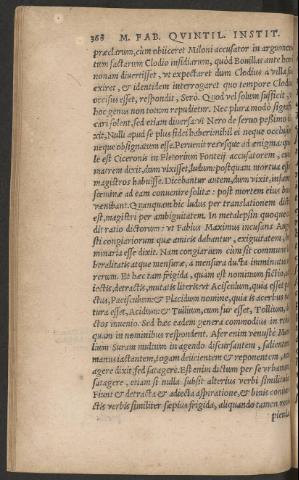 368 M. FAB. QVINTIL. INSTIT.
præclarum, cùm obiiceret Miloni accusator in argumen
tum factarum Clodio insidiarum, quòd Bouillas ante horã
nonam diuertisset, vt expectaret dum Clodius à villa sua
exiret, & identidem interrogaret quo tempore Clodius
occisus esset, respondit, Serò. Quod vel solum sufficit,
hoc genus non totum repudietur. Nec plura modò signifi
cari solent, sed etiam diuersa: vt Nero de seruo pessimo
xit, Nulli apud se plus fidei haberi: nihil ei neque occlusum
neque obsignatum esse. Peruenit res vsque ad ænigma:
le est Ciceronis in Pletorium Fonteij accusatorem,
matrem dixit, dum vixisset, ludum: postquam mortua
magistros habuisse. Dicebantur autem, dum vixit, infam
fœminæ ad eam conuenire solitæ: post mortem eius bo
venibant. Quanquam hîc ludus per translationem dict
est, magistri per ambiguitatem. In metalepsin quoque
dit ratio dictorum: vt Fabius Maximus incusans Aug
sti congiariorum quæ amicis dabantur, exiguitatem,
minaria esse dixit. Nam congiarium cùm sit commune
liberalitatis atque mensuræ, à mensura ducta imminutio
rerum. Et hæc tam frigida, quàm est nominum fictio,
iectis, detractis, mutatis literis: vt Acisculum, quia esset
ctus, Pacisculum: & Placidum nomine, quia is acerbus
tura esset, Acidum: & Tullium, cùm fur esset, Tollium,
ctos inuenio. Sed hæc eadem genera commodius in
quàm in nominibus respondent. Afer enim venustè
lium Suram multum in agendo discursantem, salientem
manus iactantem, togam deiicientem & reponentem,
agere dixit: sed satagere. Est enim dictum per se vrbanum
satagere, etiam si nulla subsit alterius verbi similitudo
Fiunt & detracta & adiecta aspiratione, & binis coniun
ctis verbis similiter sæpius frigida, aliquando tamen